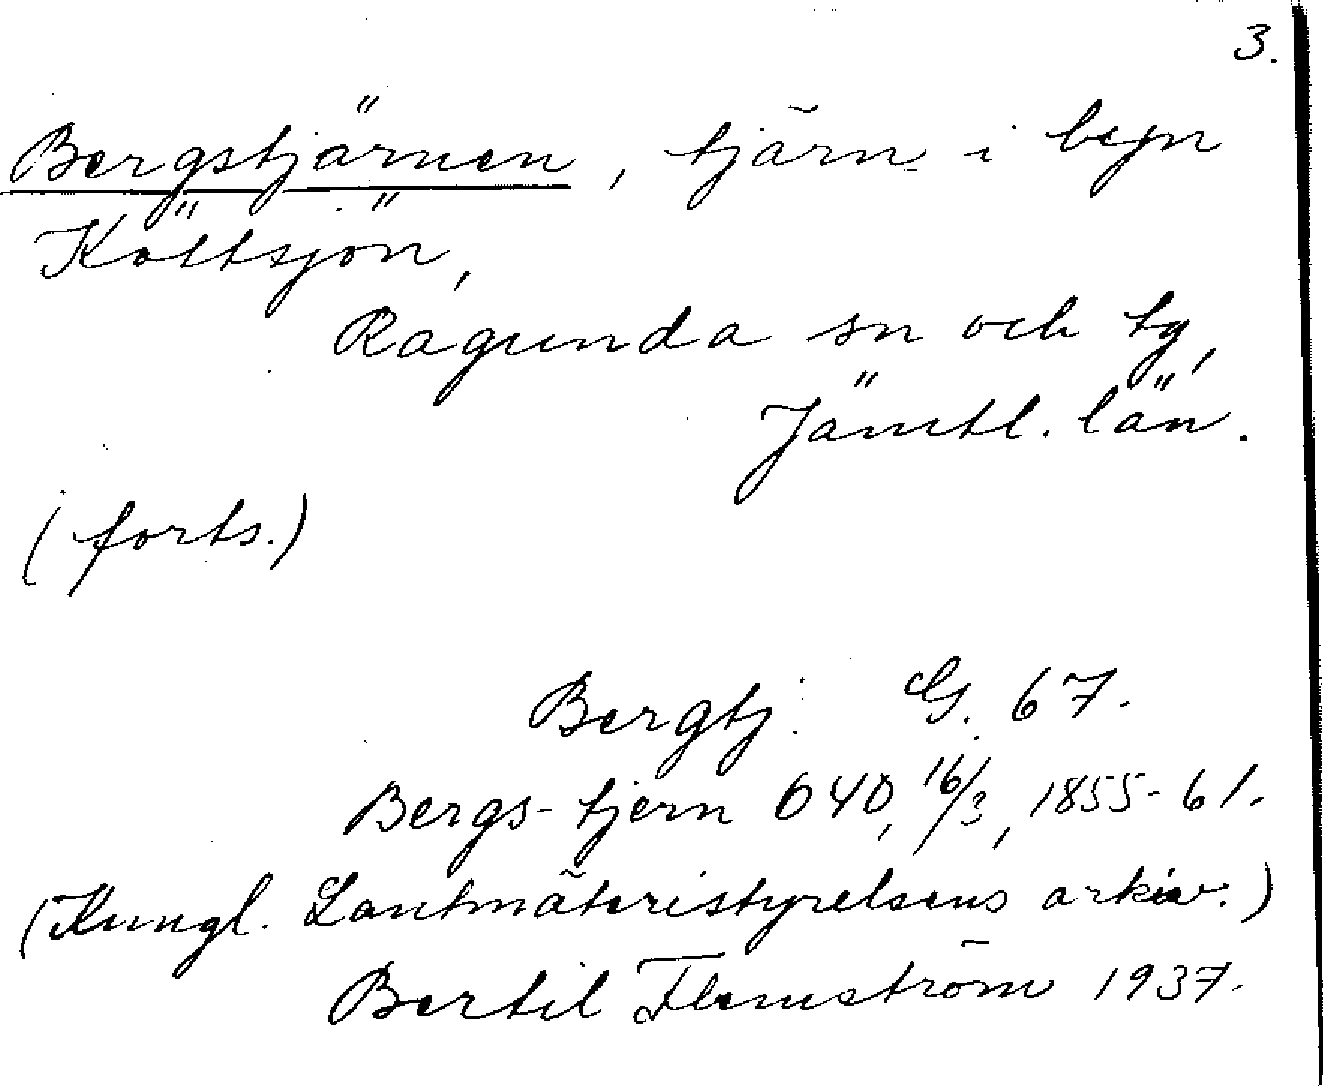 3.
Bergstjärnen, tjärn i byn
Köttsjön,
Ragunda sn och tg,
Jämtl. län.
(forts.)
Bergtj. G. 67.
Bergs-tjern 040, 16/3, 1855-61.
(Kungl. Lantmäteristyrelsens arkiv.)
Bertil Flemström 1937.